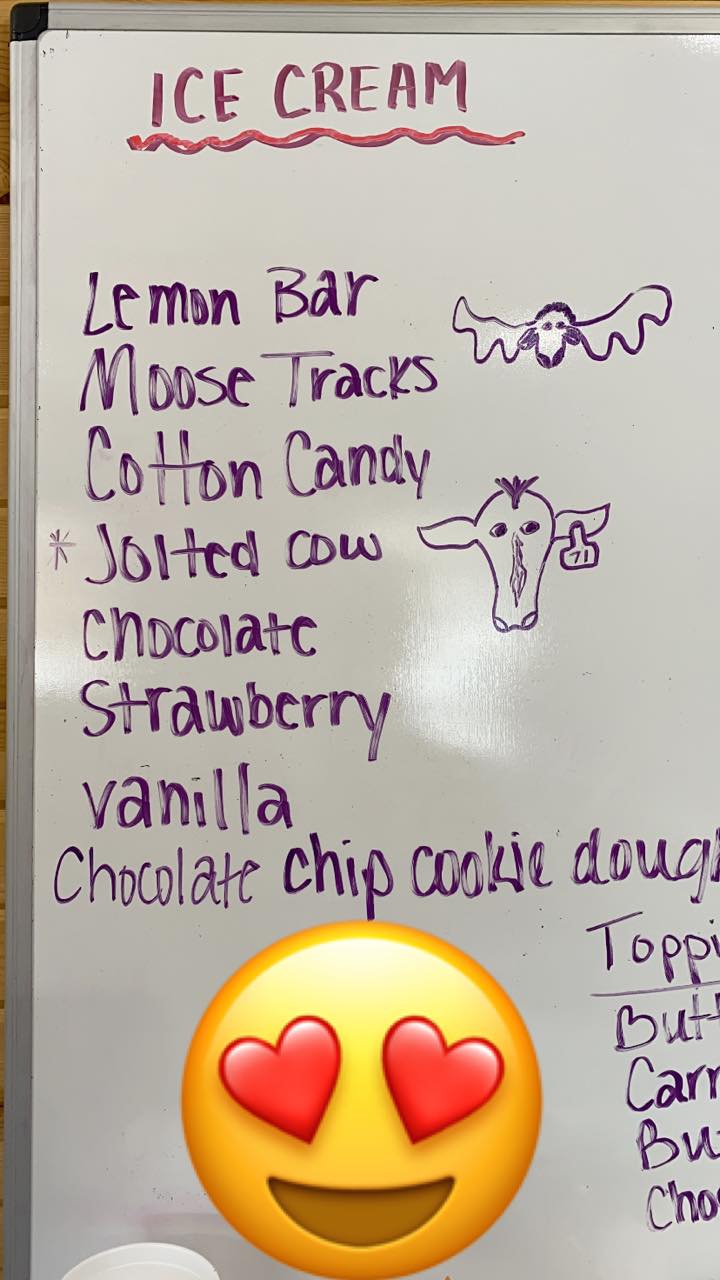 ICE CREAM
Lemon Bar
Moose Tracks
Cotton Candy
* Jolted cow
71
chocolate
Strawberry
vanilla
Chocolate chip cookie dough